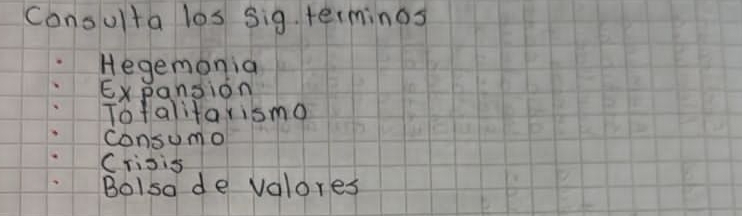 Consulta los sig. terminos
· Hegemonia
· Expansión
· Totalitarismo
· Consumo
· Crisis
· Bolsa de valores